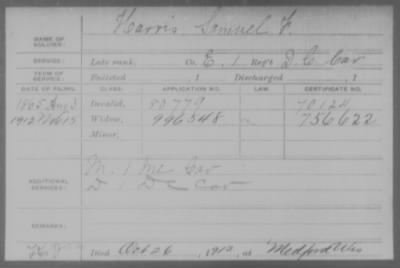 NAME OF SOLDIER: Harris Samuel F.
SERVICE: Late rank, Co. E, 1 Reg't D.C. Cav
TERM OF SERVICE: Enlisted , 1 Discharged , 1
DATE OF FILING. CLASS. APPLICATION NO. LAW. CERTIFICATE NO.
1865 Aug 3 Invalid, 80779 70124
1912 Nov 15 Widow, 996548 756622
Minor,
ADDITIONAL SERVICES: M. 1 Me Cav
D 1 D C Cav
REMARKS:
Died Oct 26, 1912, at Medford Wis